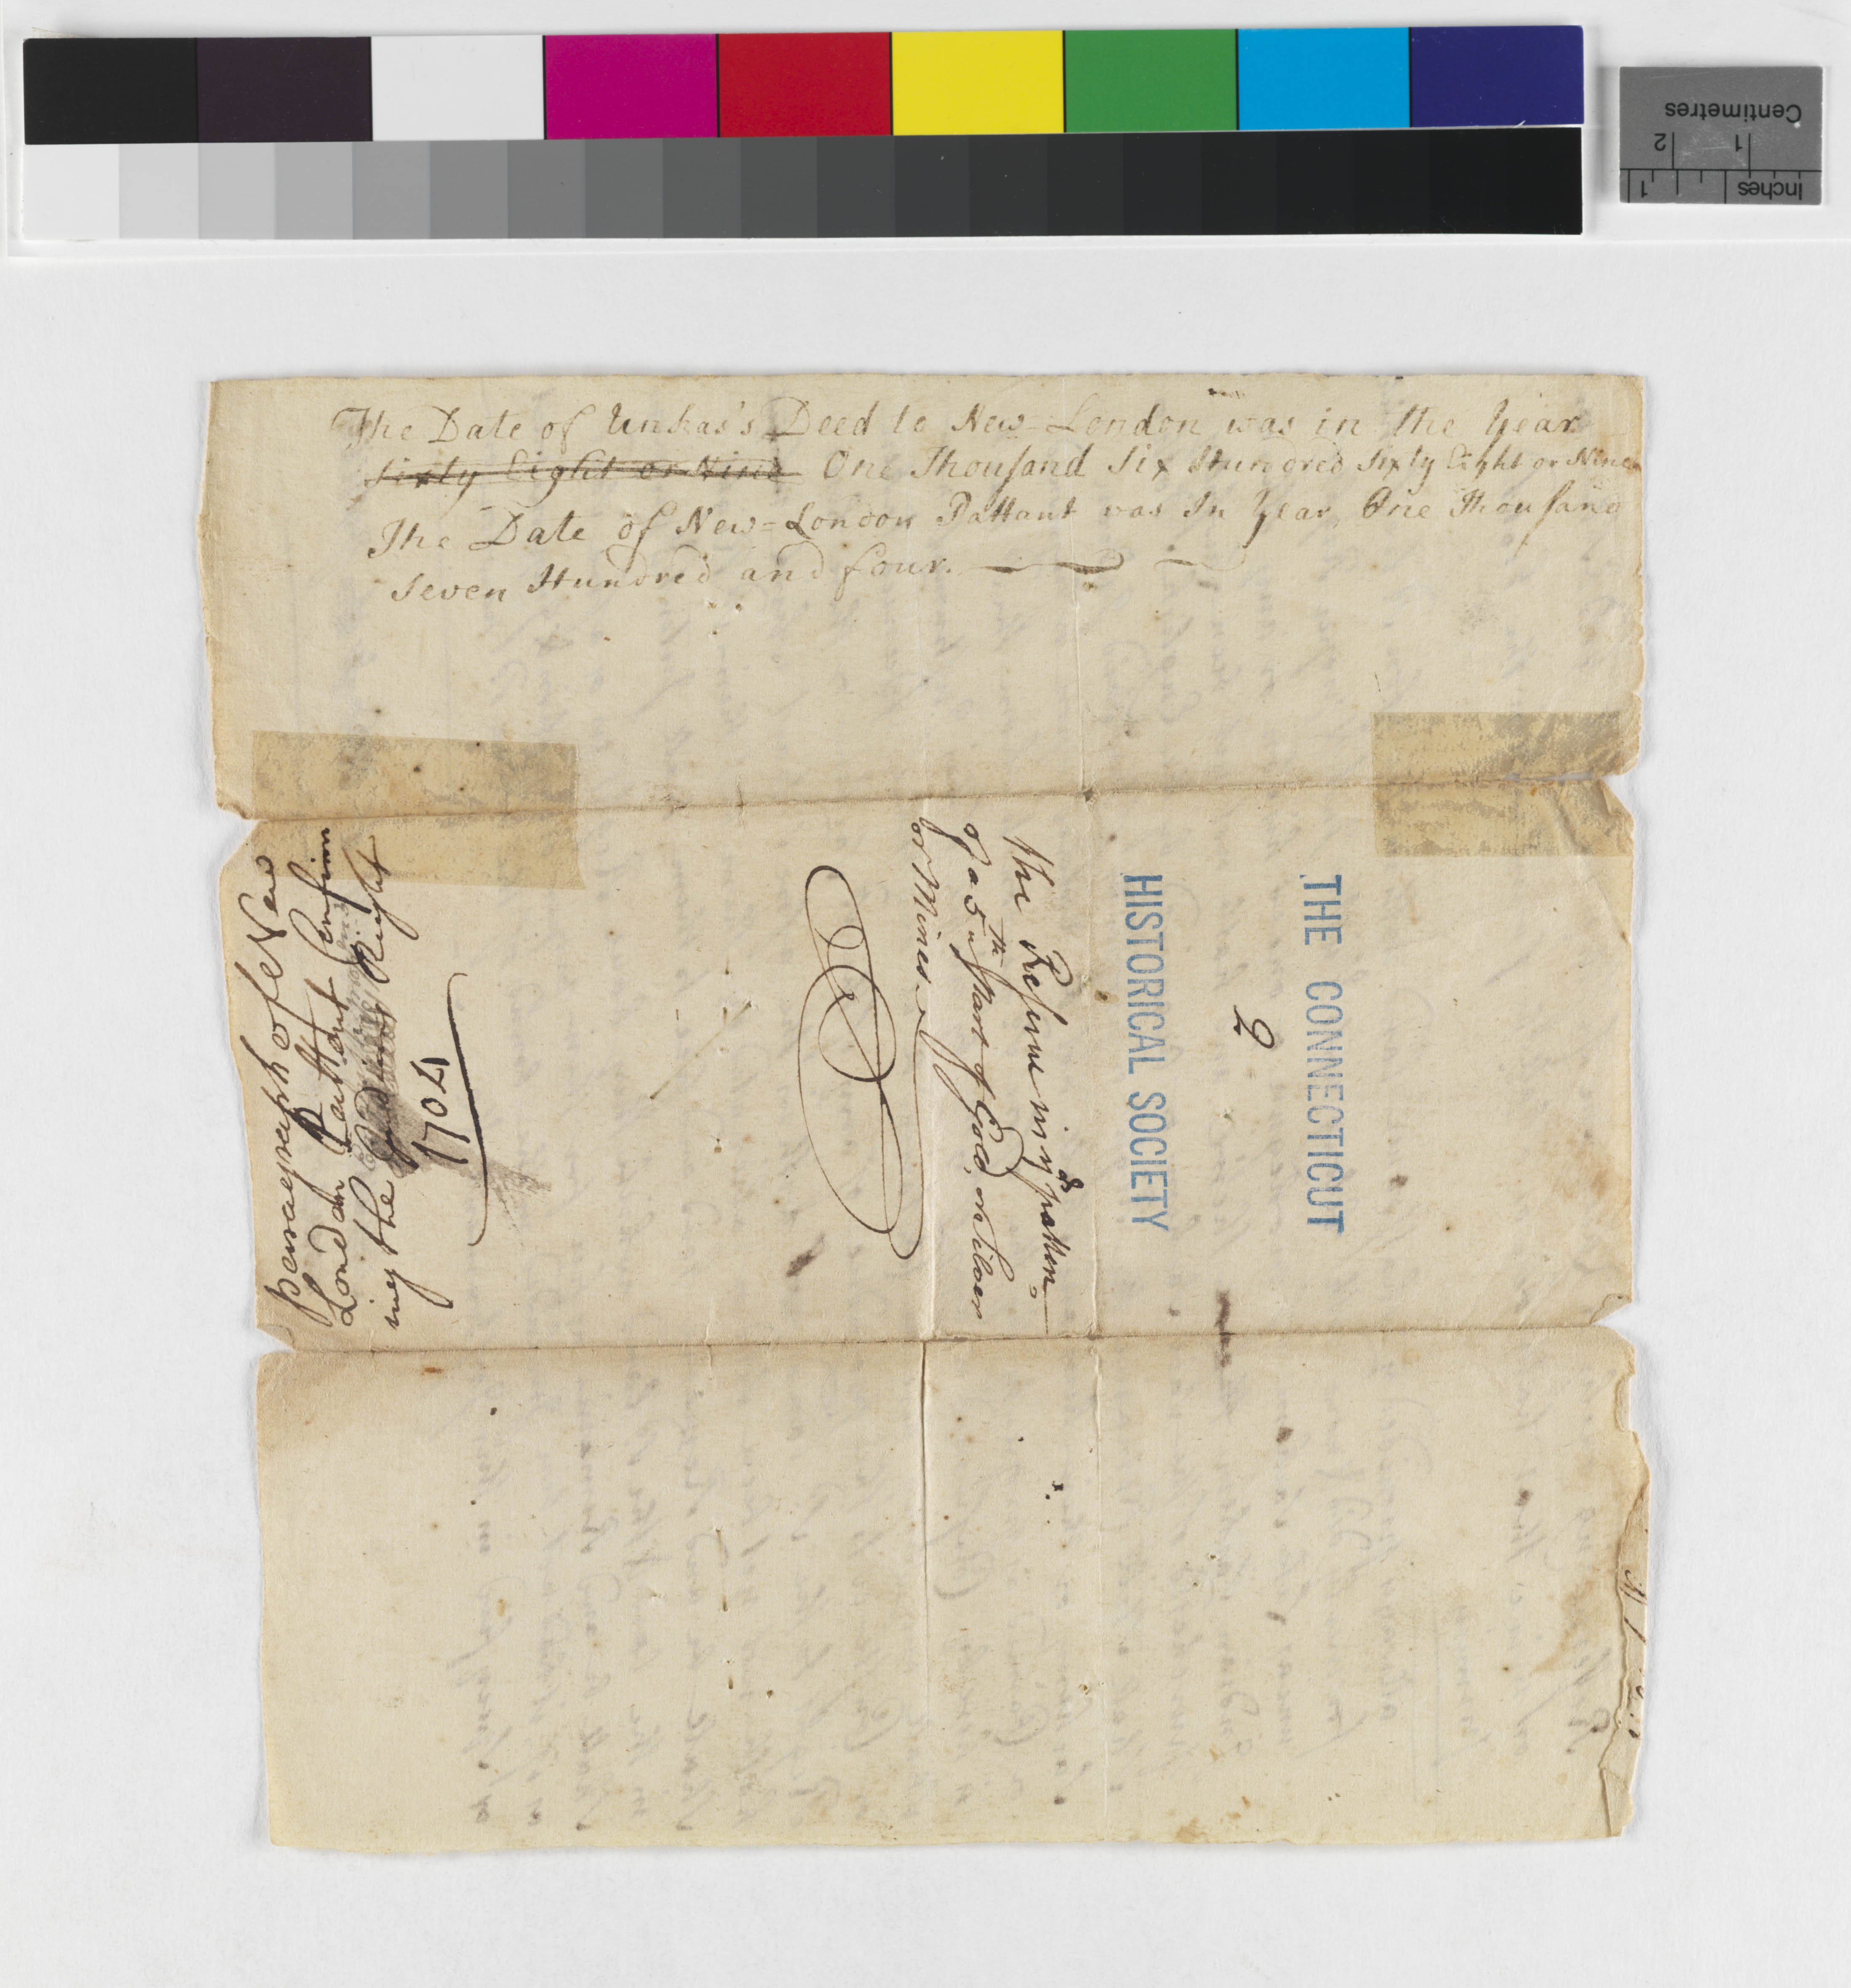 Centimetres
1 2
Inches 1
The Date of Unkas's Deed to New-London was in the Year
sixty Eight or Nine One Thousand Six Hundred sixty Eight or Nine
The Date of New=London Pattant was In Year, One Thousand
Seven Hundred and four.
THE CONNECTICUT
2
HISTORICAL SOCIETY
the Reserve in ye patten
of a 5th part of Gold, or silver
or Mines.
paragraph of e New
London Pattant Confirm
ing the Right
1704